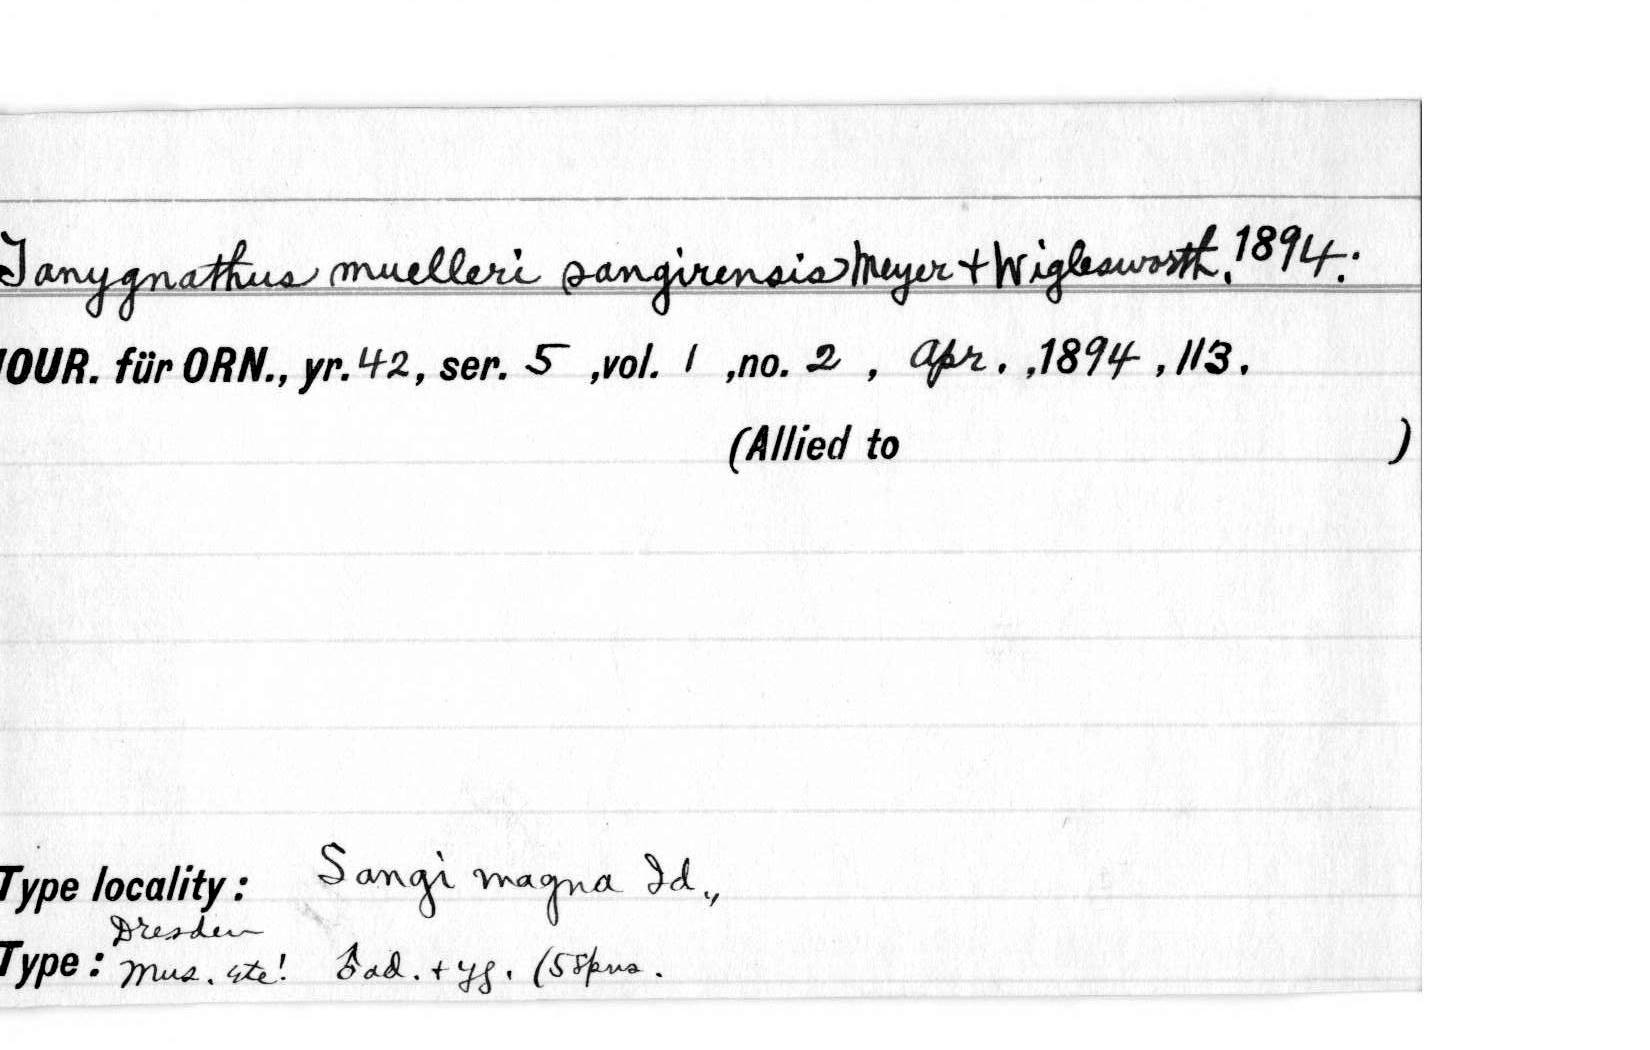 Tanygnathus muelleri sangirensis Meyer + Wiglesworth, 1894.
JOUR. für ORN., yr. 42, ser. 5 ,vol. 1 ,no. 2 , Apr. ,1894 ,113.
(Allied to )
Type locality: Sangi magna Id.,
Dresden
Type: Mus. etc! ad. + yg. (5 spns.